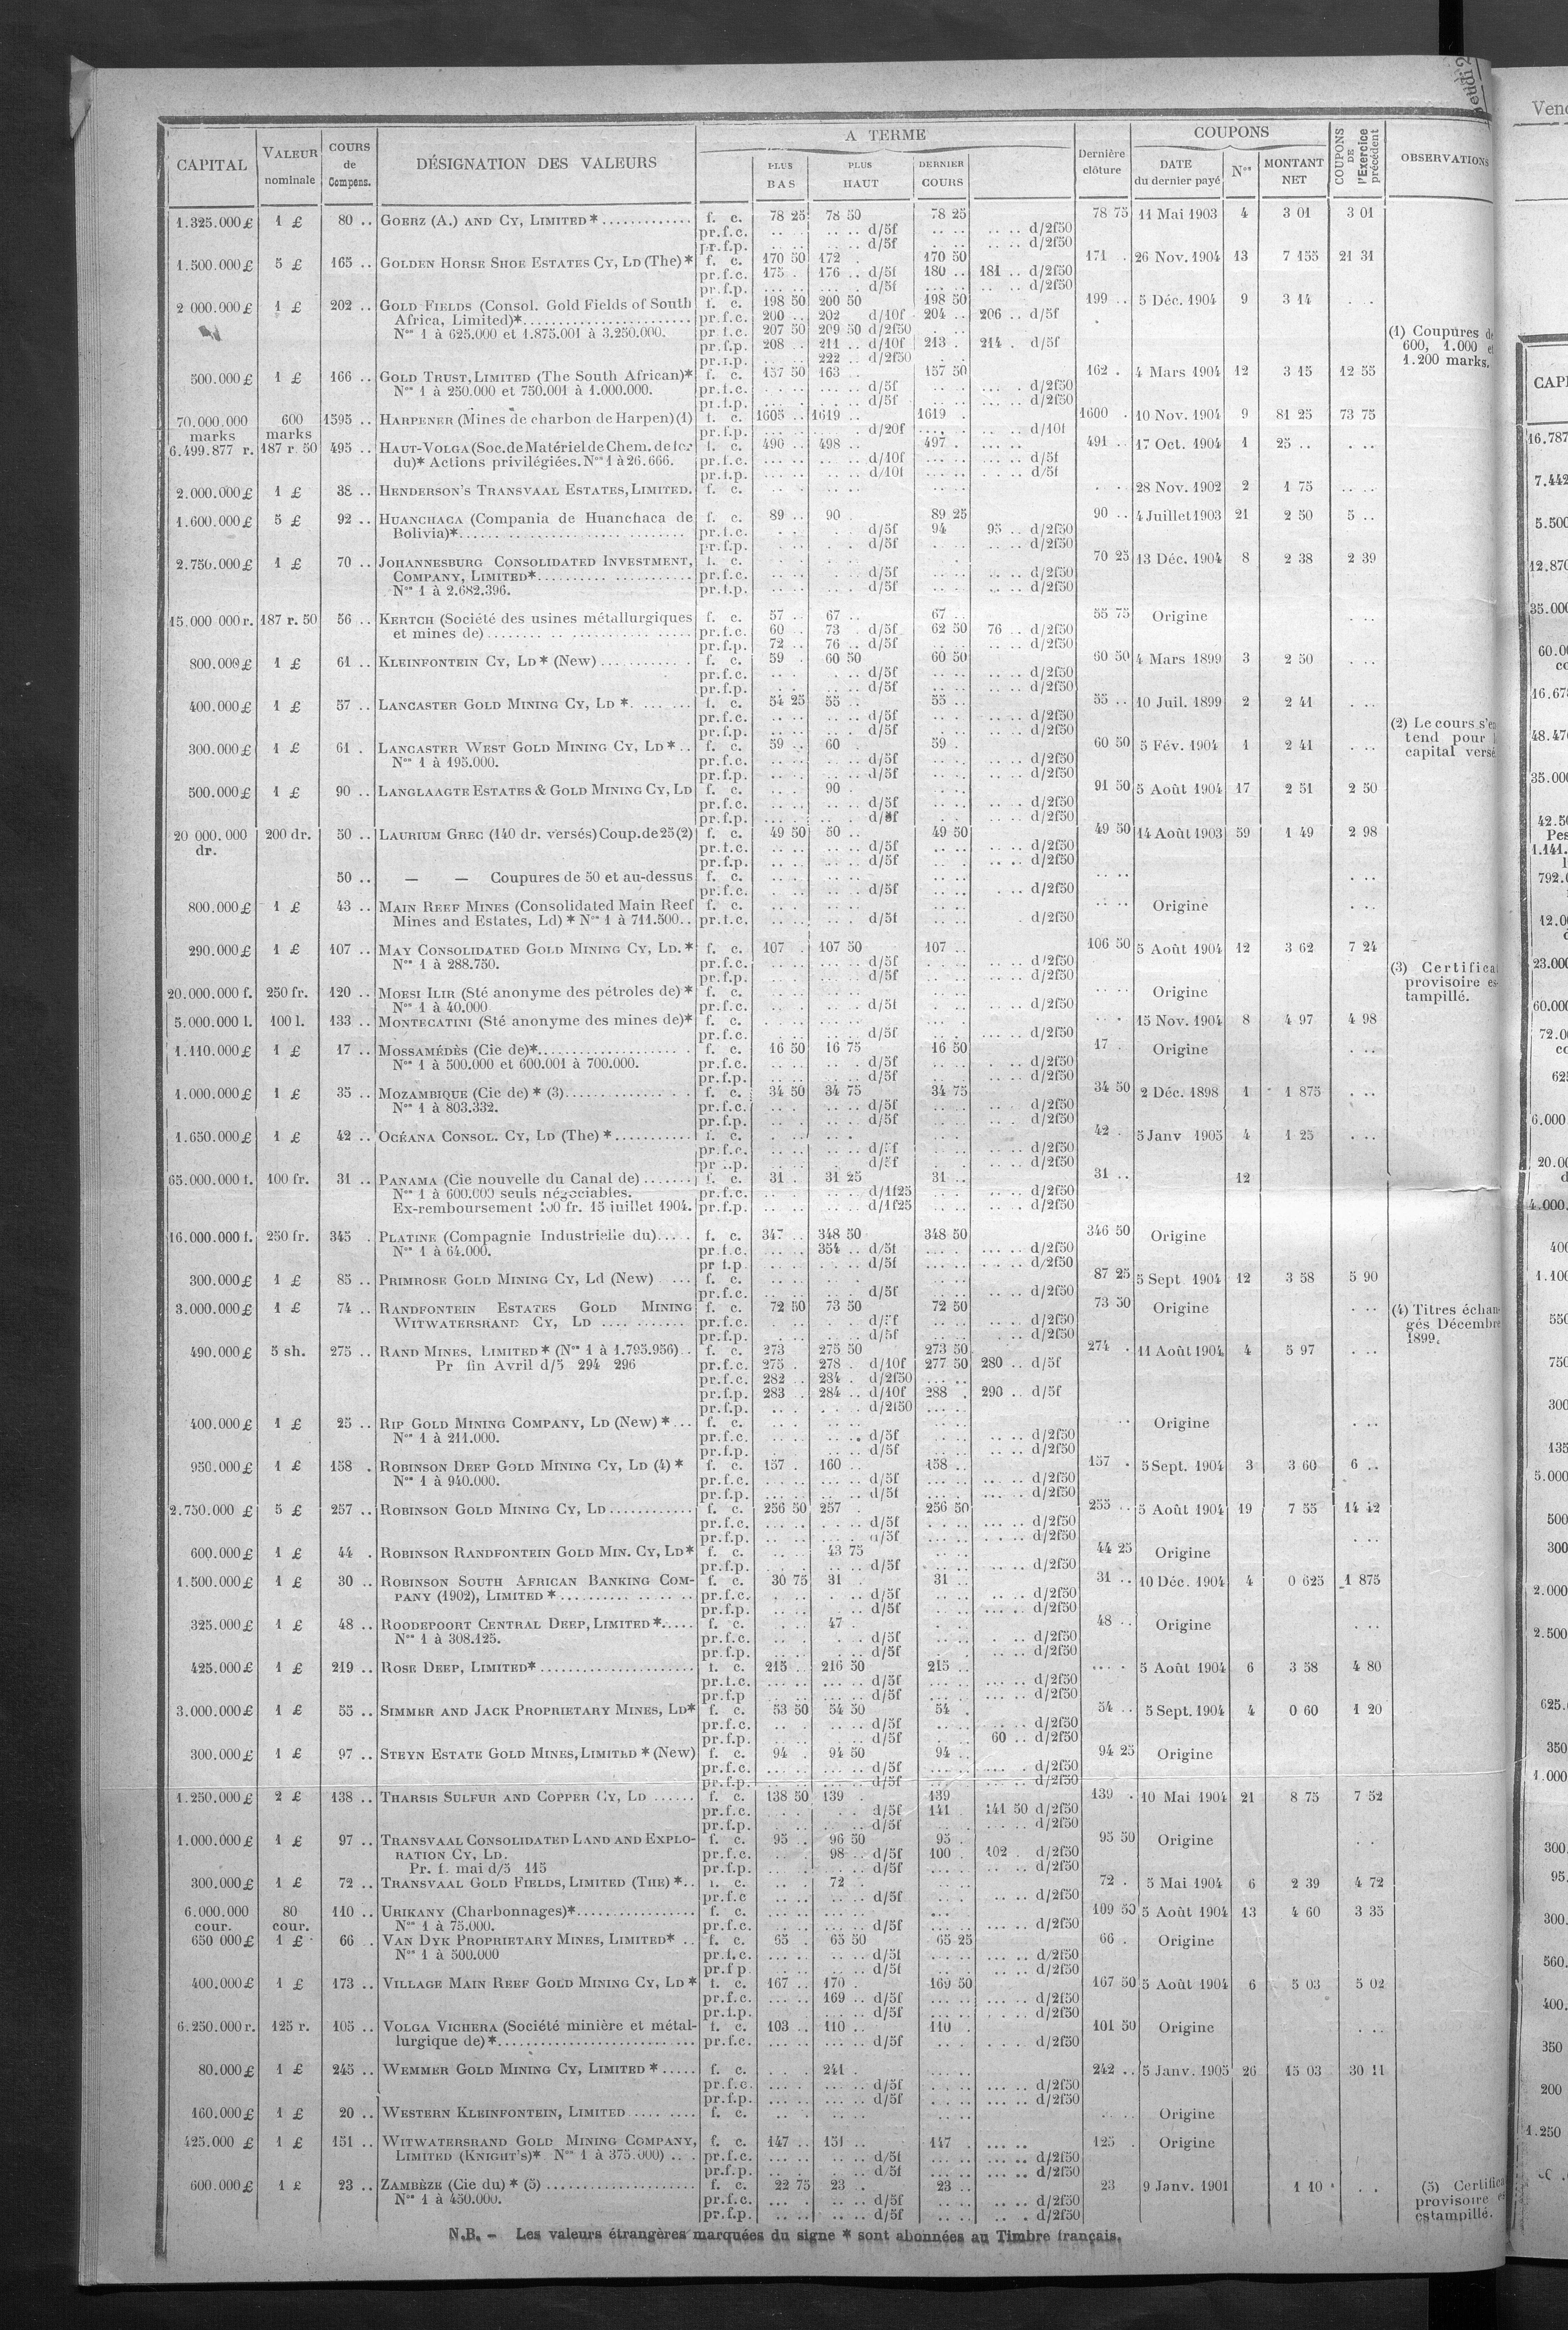 Jeudi 2
A TERME
COUPONS
CAPITAL VALEUR nominale COURS de Compens. DÉSIGNATION DES VALEURS PLUS BAS PLUS HAUT DERNIER COURS Dernière clôture DATE du dernier payé Nos MONTANT NET COUPONS DE l'Exercice précédent OBSERVATIONS
1.325.000 £ 1 £ 80 .. GOERZ (A.) AND CY, LIMITED * f. c. 78 25 78 50 78 25 78 75 11 Mai 1903 4 3 01 3 01
pr.f.c. .. .. d/5f .. .. d/2f50
pr.f.p. .. .. d/5f .. .. d/2f50
1.500.000 £ 5 £ 165 .. GOLDEN HORSE SHOE ESTATES CY, LD (The) * f. c. 170 50 172 . 170 50 171 . 26 Nov. 1904 13 7 155 21 31
pr.f.c. 175 . 176 .. d/5f 180 .. 181 .. d/2f50
pr.f.p. .. .. d/5f .. .. d/2f50
2 000.000 £ 1 £ 202 .. GOLD FIELDS (Consol. Gold Fields of South f. c. 198 50 200 50 198 50 199 .. 5 Déc. 1904 9 3 14 . ..
Africa, Limited)* pr.f.c. 200 .. 202 d/10f 204 .. 206 .. d/5f
Nos 1 à 625.000 et 1.875.001 à 3.250.000. pr.f.c. 207 50 209 50 d/2f50
pr.f.p. 208 . 211 .. d/10f 213 . 214 . d/5f
pr.f.p. 222 .. d/2f50
(1) Coupures de
600, 1.000 et
1.200 marks.
500.000 £ 1 £ 166 .. GOLD TRUST, LIMITED (The South African)* f. c. 157 50 163 . 157 50 162 . 4 Mars 1904 12 3 15 12 55
Nos 1 à 250.000 et 750.001 à 1.000.000. pr.f.c. d/5f d/2f50
pr.f.p. d/5f d/2f50
70.000.000 marks 600 marks 1595 .. HARPENER (Mines de charbon de Harpen)(1) f. c. 1605 .. 1619 .. 1619 . 1600 . 10 Nov. 1904 9 81 25 73 75
pr.f.p. d/20f d/10f
6.499.877 r. 187 r. 50 495 .. HAUT-VOLGA (Soc. de Matériel de Chem. de fer f. c. 490 .. 498 .. 497 . 491 .. 17 Oct. 1904 1 25 .. . ..
du)* Actions privilégiées. Nos 1 à 26.666. pr.f.c. d/10f d/5f
pr.f.p. d/10f d/5f
2.000.000 £ 1 £ 38 .. HENDERSON'S TRANSVAAL ESTATES, LIMITED. f. c. 28 Nov. 1902 2 1 75 .. ..
1.600.000 £ 5 £ 92 .. HUANCHACA (Compania de Huanchaca de f. c. 89 .. 90 . 89 25 90 .. 4 Juillet 1903 21 2 50 5 ..
Bolivia)* pr.f.c. d/5f 94 95 .. d/2f50
pr.f.p. d/5f d/2f50
2.750.000 £ 1 £ 70 .. JOHANNESBURG CONSOLIDATED INVESTMENT, f. c. 70 25 13 Déc. 1904 8 2 38 2 39
COMPANY, LIMITED* pr.f.c. d/5f d/2f50
Nos 1 à 2.682.396. pr.f.p. d/5f d/2f50
15.000 000 r. 187 r. 50 56 .. KERTCH (Société des usines métallurgiques f. c. 57 .. 67 67 .. 55 75 Origine . ..
et mines de) pr.f.c. 60 .. 73 . d/5f 62 50 76 .. d/2f50
pr.f.p. 72 .. 76 .. d/5f d/2f50
800.000 £ 1 £ 61 .. KLEINFONTEIN CY, LD * (New) f. c. 59 . 60 50 60 50 60 50 4 Mars 1899 3 2 50 . ..
pr.f.c. d/5f d/2f50
pr.f.p. d/5f d/2f50
400.000 £ 1 £ 57 .. LANCASTER GOLD MINING CY, LD * f. c. 54 25 55 .. 55 .. 55 .. 10 Juil. 1899 2 2 41 . ..
pr.f.c. d/5f d/2f50
pr.f.p. d/5f d/2f50
(2) Le cours s'en
tend pour
capital versé
300.000 £ 1 £ 61 . LANCASTER WEST GOLD MINING CY, LD * f. c. 59 .. 60 59 . 60 50 5 Fév. 1904 1 2 41 . ..
Nos 1 à 195.000. pr.f.c. d/5f d/2f50
pr.f.p. d/5f d/2f50
500.000 £ 1 £ 90 .. LANGLAAGTE ESTATES & GOLD MINING CY, LD f. c. 90 . 91 50 5 Août 1904 17 2 51 2 50
pr.f.c. d/5f d/2f50
pr.f.p. d/5f d/2f50
20 000.000 dr. 200 dr. 50 .. LAURIUM GREC (140 dr. versés) Coup. de 25 (2) f. c. 49 50 50 .. 49 50 49 50 14 Août 1903 59 1 49 2 98
pr.f.c. d/5f d/2f50
pr.f.p. d/5f d/2f50
50 .. — — Coupures de 50 et au-dessus f. c. . ..
pr.f.c. d/5f d/2f50
800.000 £ 1 £ 43 .. MAIN REEF MINES (Consolidated Main Reef f. c. Origine . ..
Mines and Estates, Ld) * Nos 1 à 711.500.. pr.f.c. d/5f d/2f50
290.000 £ 1 £ 107 .. MAY CONSOLIDATED GOLD MINING CY, LD. * f. c. 107 . 107 50 107 .. 106 50 5 Août 1904 12 3 62 7 24
Nos 1 à 288.750. pr.f.c. d/5f d/2f50
pr.f.p. d/5f d/2f50
(3) Certificat
provisoire es-
tampillé.
20.000.000 f. 250 fr. 120 .. MOESI ILIR (Sté anonyme des pétroles de) * f. c. Origine
Nos 1 à 40.000 pr.f.c. d/5f d/2f50
5.000.000 l. 100 l. 133 .. MONTECATINI (Sté anonyme des mines de)* f. c. 15 Nov. 1904 8 4 97 4 98
pr.f.c. d/5f d/2f50
1.110.000 £ 1 £ 17 .. MOSSAMÉDÈS (Cie de)* f. c. 16 50 16 75 16 50 17 . Origine . ..
Nos 1 à 500.000 et 600.001 à 700.000. pr.f.c. d/5f d/2f50
pr.f.p. d/5f d/2f50
1.000.000 £ 1 £ 35 .. MOZAMBIQUE (Cie de) * (3) f. c. 34 50 34 75 34 75 34 50 2 Déc. 1898 1 1 875 . ..
Nos 1 à 803.332. pr.f.c. d/5f d/2f50
pr.f.p. d/5f d/2f50
1.650.000 £ 1 £ 42 .. OCÉANA CONSOL. CY, LD (The) * f. c. 42 . 5 Janv 1905 4 1 25 . ..
pr.f.c. d/5f d/2f50
pr.f.p. d/5f d/2f50
65.000.000 f. 100 fr. 31 .. PANAMA (Cie nouvelle du Canal de) f. c. 31 . 31 25 31 .. 31 .. 12
Nos 1 à 600.000 seuls négociables. pr.f.c. d/1f25 d/2f50
Ex-remboursement 100 fr. 15 juillet 1904. pr.f.p. d/1f25 d/2f50
16.000.000 f. 250 fr. 345 . PLATINE (Compagnie Industrielle du) f. c. 347 .. 348 50 348 50 346 50 Origine
Nos 1 à 64.000. pr.f.c. 354 .. d/5f d/2f50
pr.f.p. d/5f d/2f50
300.000 £ 1 £ 85 .. PRIMROSE GOLD MINING CY, Ld (New) f. c. 87 25 5 Sept 1904 12 3 58 5 90
pr.f.c. d/5f d/2f50
3.000.000 £ 1 £ 74 .. RANDFONTEIN ESTATES GOLD MINING f. c. 72 50 73 50 72 50 73 50 Origine . ..
WITWATERSRAND CY, LD pr.f.c. d/5f d/2f50
pr.f.p. d/5f d/2f50
(4) Titres échan-
gés Décembre
1899.
490.000 £ 5 sh. 275 .. RAND MINES, LIMITED * (Nos 1 à 1.795.956) f. c. 273 275 50 273 50 274 . 11 Août 1904 4 5 97 . ..
Pr fin Avril d/5 294 296 pr.f.c. 275 . 278 . d/10f 277 50 280 .. d/5f
pr.f.c. 282 .. 284 . d/2f50
pr.f.p. 283 284 .. d/10f 288 . 290 .. d/5f
pr.f.p. d/2f50
400.000 £ 1 £ 25 .. RIP GOLD MINING COMPANY, LD (New) * f. c. Origine . ..
Nos 1 à 211.000. pr.f.c. d/5f d/2f50
pr.f.p. d/5f d/2f50
950.000 £ 1 £ 158 . ROBINSON DEEP GOLD MINING CY, LD (4) * f. c. 157 . 160 . 158 .. 157 . 5 Sept. 1904 3 3 60 6 ..
Nos 1 à 940.000. pr.f.c. d/5f d/2f50
pr.f.p. d/5f d/2f50
2.750.000 £ 5 £ 257 .. ROBINSON GOLD MINING CY, LD f. c. 256 50 257 . 256 50 255 .. 5 Août 1904 19 7 55 14 42
pr.f.c. d/5f d/2f50
pr.f.p. d/5f d/2f50
600.000 £ 1 £ 44 . ROBINSON RANDFONTEIN GOLD MIN. CY, LD* f. c. 43 75 44 25 Origine . ..
pr.f.p. d/5f d/2f50
1.500.000 £ 1 £ 30 .. ROBINSON SOUTH AFRICAN BANKING COM- f. c. 30 75 31 . 31 .. 31 .. 10 Déc. 1904 4 0 625 1 875
PANY (1902), LIMITED * pr.f.c. d/5f d/2f50
pr.f.p. d/5f d/2f50
325.000 £ 1 £ 48 .. ROODEPOORT CENTRAL DEEP, LIMITED * f. c. 47 . 48 .. Origine . ..
Nos 1 à 308.125. pr.f.c. d/5f d/2f50
pr.f.p. d/5f d/2f50
425.000 £ 1 £ 219 .. ROSE DEEP, LIMITED* f. c. 215 .. 216 50 215 .. 5 Août 1904 6 3 58 4 80
pr.f.c. d/5f d/2f50
pr.f.p d/5f d/2f50
3.000.000 £ 1 £ 55 .. SIMMER AND JACK PROPRIETARY MINES, LD* f. c. 53 50 54 50 54 . 54 .. 5 Sept. 1904 4 0 60 1 20
pr.f.c. d/5f d/2f50
pr.f.p. d/5f 60 .. d/2f50
300.000 £ 1 £ 97 .. STEYN ESTATE GOLD MINES, LIMITED * (New) f. c. 94 . 94 50 94 .. 94 25 Origine
pr.f.c. d/5f d/2f50
pr.f.p. d/5f d/2f50
1.250.000 £ 2 £ 138 .. THARSIS SULFUR AND COPPER CY, LD f. c. 138 50 139 . 139 139 . 10 Mai 1904 21 8 75 7 52
pr.f.c. d/5f 141 . 141 50 d/2f50
pr.f.p. d/5f d/2f50
1.000.000 £ 1 £ 97 .. TRANSVAAL CONSOLIDATED LAND AND EXPLO- f. c. 95 .. 96 50 95 . 95 50 Origine
RATION CY, LD. pr.f.c. 98 .. d/5f 100 . 102 . d/2f50
Pr. f. mai d/5 115 pr.f.p. d/5f d/2f50
300.000 £ 1 £ 72 .. TRANSVAAL GOLD FIELDS, LIMITED (THE) * f. c. 72 . 72 . 5 Mai 1904 6 2 39 4 72
pr.f.c d/5f d/2f50
6.000.000 cour. 80 cour. 110 .. URIKANY (Charbonnages)* f. c. 109 50 5 Août 1904 13 4 60 3 35
Nos 1 à 75.000. pr.f.c. d/5f d/2f50
650 000 £ 1 £ 66 . VAN DYK PROPRIETARY MINES, LIMITED* f. c. 65 . 65 50 65 25 66 . Origine
Nos 1 à 500.000 pr.f.c. d/5f d/2f50
pr.f p d/5f d/2f50
400.000 £ 1 £ 173 .. VILLAGE MAIN REEF GOLD MINING CY, LD * f. c. 167 .. 170 . 169 50 167 50 5 Août 1904 6 5 03 5 02
pr.f.c. 169 .. d/5f d/2f50
pr.f.p. d/5f d/2f50
6.250.000 r. 125 r. 105 .. VOLGA VICHERA (Société minière et métal- f. c. 103 .. 110 .. 110 . 101 50 Origine . ..
lurgique de) * pr.f.c. d/5f d/2f50
80.000 £ 1 £ 245 .. WEMMER GOLD MINING CY, LIMITED * f. c. 241 . 242 .. 5 Janv. 1905 26 15 03 30 11
pr.f.c. d/5f d/2f50
pr.f.p. d/5f d/2f50
160.000 £ 1 £ 20 .. WESTERN KLEINFONTEIN, LIMITED f. c. Origine
425.000 £ 1 £ 151 .. WITWATERSRAND GOLD MINING COMPANY, f. c. 147 .. 151 .. 147 . 125 . Origine
LIMITED (KNIGHT'S)* Nos 1 à 375.000) pr.f.c. d/5f d/2f50
pr.f.p. d/5f d/2f50
600.000 £ 1 £ 23 .. ZAMBÈZE (Cie du) * (5) f. c. 22 75 23 . 23 .. 23 9 Janv. 1901 1 10 . ..
Nos 1 à 450.000. pr.f.c. d/5f d/2f50
pr.f.p. d/5f d/2f50
(5) Certificat
provisoire
estampillé.
N.B. – Les valeurs étrangères marquées du signe * sont abonnées au Timbre français.